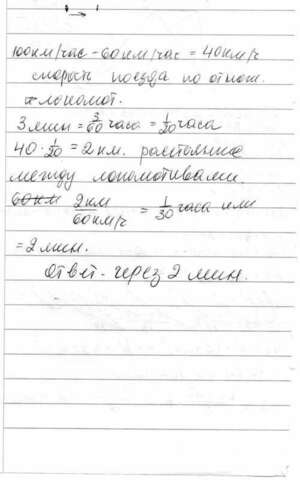 100км/час - 60км/час = 40км/ч
скорость поезда по отнош.
к локомот.
3 мин = 3/60 часа = 1/20 часа
40 · 1/20 = 2 км. расстояние
между локомотивами.
60км 2км / 60км/ч = 1/30 часа или
= 2 мин.
Ответ - через 2 мин.